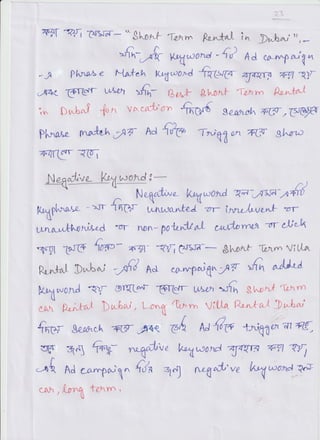 23
করা হয়, যেমন— "Short Term Rental in Dubai",—
যদি এই Keyword-টি Ad campaign
-এ Phrase Match Keyword হিসেবে ব্যবহার করা হয়
এবং কোনো user যদি Best Short Term Rental
in Dubai for vacation লিখেও search করে, সেক্ষেত্রে
Phrase match এর Ad টিকে Trigger করে show
করানো হবে,
Negative Keyword:—
Negative keyword হল এমন একটি
Keyphrase - যা দিয়ে unwanted বা irrelevent বা
unauthorised বা non-potential customer বা click
করা থেকে করা হয়, যেমন— Short Term Villa
Rental Dubai - এটি Ad campaign এ যদি added
Keyword হয় তাহলে কোনো user যদি Short Term
car Rental Dubai, Long Term Villa Rental Dubai
লিখে search করে এবং সেই Ad টিকে trigger না করে,
তার জন্য কিছু negative keyword ব্যবহার করা হয়,
এই Ad campaign টির জন্য negative keyword হল
car, long term.